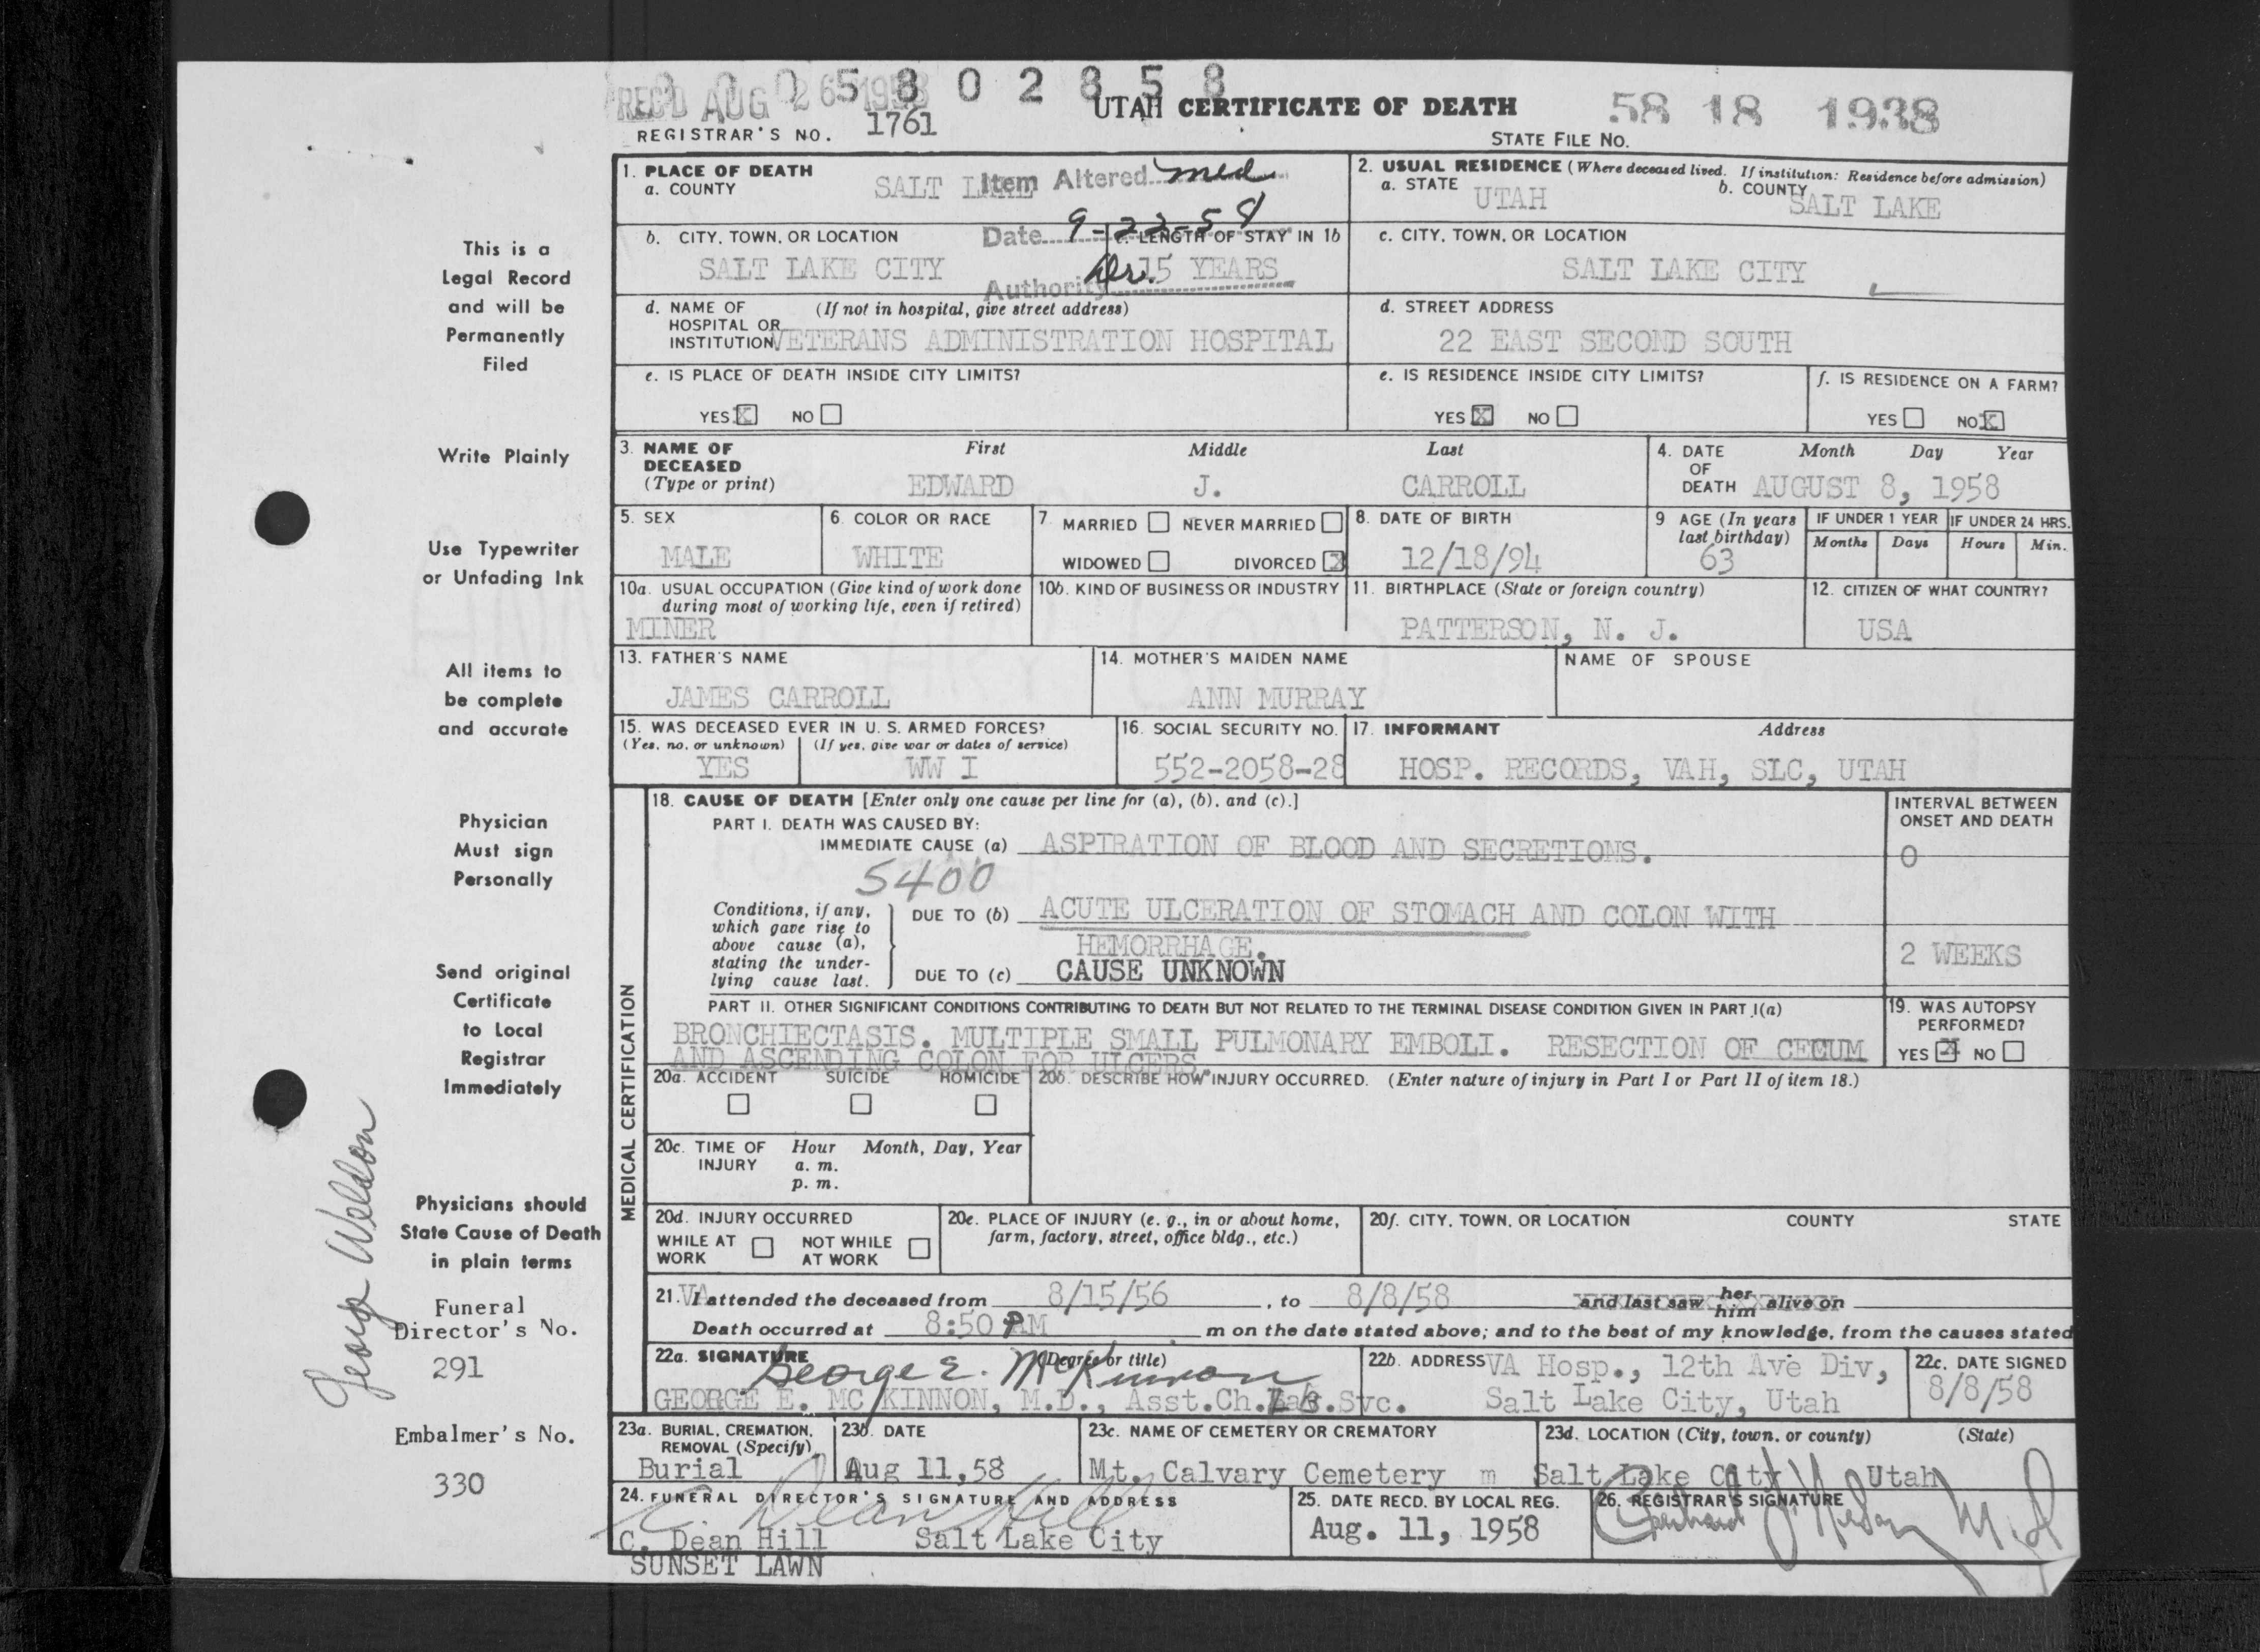 REC'D AUG 26 1958
0 0 0 5 8 0 2 8 5 8
UTAH CERTIFICATE OF DEATH
58 18 1938
REGISTRAR'S NO. 1761
STATE FILE NO.
1. PLACE OF DEATH
a. COUNTY SALT LAKE
Item Altered med
Date 9-22-58
Authority Dr.
2. USUAL RESIDENCE (Where deceased lived. If institution: Residence before admission)
a. STATE UTAH b. COUNTY SALT LAKE
b. CITY, TOWN, OR LOCATION SALT LAKE CITY
c. LENGTH OF STAY IN 1b 15 YEARS
c. CITY, TOWN, OR LOCATION SALT LAKE CITY
d. NAME OF HOSPITAL OR INSTITUTION (If not in hospital, give street address)
VETERANS ADMINISTRATION HOSPITAL
d. STREET ADDRESS
22 EAST SECOND SOUTH
e. IS PLACE OF DEATH INSIDE CITY LIMITS?
YES X NO
e. IS RESIDENCE INSIDE CITY LIMITS?
YES X NO
f. IS RESIDENCE ON A FARM?
YES NO X
3. NAME OF DECEASED (Type or print)
First Middle Last
EDWARD J. CARROLL
4. DATE OF DEATH Month Day Year
AUGUST 8, 1958
5. SEX
MALE
6. COLOR OR RACE
WHITE
7. MARRIED NEVER MARRIED
WIDOWED DIVORCED X
8. DATE OF BIRTH
12/18/94
9 AGE (In years last birthday)
63
IF UNDER 1 YEAR IF UNDER 24 HRS.
Months Days Hours Min.
10a. USUAL OCCUPATION (Give kind of work done during most of working life, even if retired)
MINER
10b. KIND OF BUSINESS OR INDUSTRY
11. BIRTHPLACE (State or foreign country)
PATTERSON, N. J.
12. CITIZEN OF WHAT COUNTRY?
USA
13. FATHER'S NAME
JAMES CARROLL
14. MOTHER'S MAIDEN NAME
ANN MURRAY
NAME OF SPOUSE
15. WAS DECEASED EVER IN U. S. ARMED FORCES?
(Yes, no, or unknown) (If yes, give war or dates of service)
YES WW I
16. SOCIAL SECURITY NO.
552-2058-28
17. INFORMANT Address
HOSP. RECORDS, VAH, SLC, UTAH
MEDICAL CERTIFICATION
18. CAUSE OF DEATH [Enter only one cause per line for (a), (b), and (c).]
INTERVAL BETWEEN ONSET AND DEATH
PART I. DEATH WAS CAUSED BY:
IMMEDIATE CAUSE (a) ASPIRATION OF BLOOD AND SECRETIONS. 0
5400
Conditions, if any, which gave rise to above cause (a), stating the underlying cause last.
DUE TO (b) ACUTE ULCERATION OF STOMACH AND COLON WITH
HEMORRHAGE. 2 WEEKS
DUE TO (c) CAUSE UNKNOWN
PART II. OTHER SIGNIFICANT CONDITIONS CONTRIBUTING TO DEATH BUT NOT RELATED TO THE TERMINAL DISEASE CONDITION GIVEN IN PART I(a)
BRONCHIECTASIS. MULTIPLE SMALL PULMONARY EMBOLI. RESECTION OF CECUM
AND ASCENDING COLON FOR ULCERS.
19. WAS AUTOPSY PERFORMED?
YES X NO
20a. ACCIDENT SUICIDE HOMICIDE
20b. DESCRIBE HOW INJURY OCCURRED. (Enter nature of injury in Part I or Part II of item 18.)
20c. TIME OF INJURY Hour Month, Day, Year
a. m.
p. m.
20d. INJURY OCCURRED
WHILE AT WORK NOT WHILE AT WORK
20e. PLACE OF INJURY (e. g., in or about home, farm, factory, street, office bldg., etc.)
20f. CITY, TOWN, OR LOCATION COUNTY STATE
21. VA I attended the deceased from 8/15/56, to 8/8/58 and last saw her him alive on
Death occurred at 8:50 PM m on the date stated above; and to the best of my knowledge, from the causes stated
22a. SIGNATURE (Degree or title)
George E. McKinnon
GEORGE E. MC KINNON, M.D., Asst.Ch.Lab.Svc.
22b. ADDRESS VA Hosp., 12th Ave Div,
Salt Lake City, Utah
22c. DATE SIGNED
8/8/58
23a. BURIAL, CREMATION, REMOVAL (Specify)
Burial
23b. DATE
Aug 11,58
23c. NAME OF CEMETERY OR CREMATORY
Mt. Calvary Cemetery m
23d. LOCATION (City, town, or county) (State)
Salt Lake City Utah
24. FUNERAL DIRECTOR'S SIGNATURE AND ADDRESS
C. Dean Hill
C. Dean Hill Salt Lake City
SUNSET LAWN
25. DATE RECD. BY LOCAL REG.
Aug. 11, 1958
26. REGISTRAR'S SIGNATURE
This is a
Legal Record
and will be
Permanently
Filed
Write Plainly
Use Typewriter
or Unfading Ink
All items to
be complete
and accurate
Physician
Must sign
Personally
Send original
Certificate
to Local
Registrar
Immediately
Physicians should
State Cause of Death
in plain terms
Funeral
Director's No.
291
Embalmer's No.
330
George Weldon